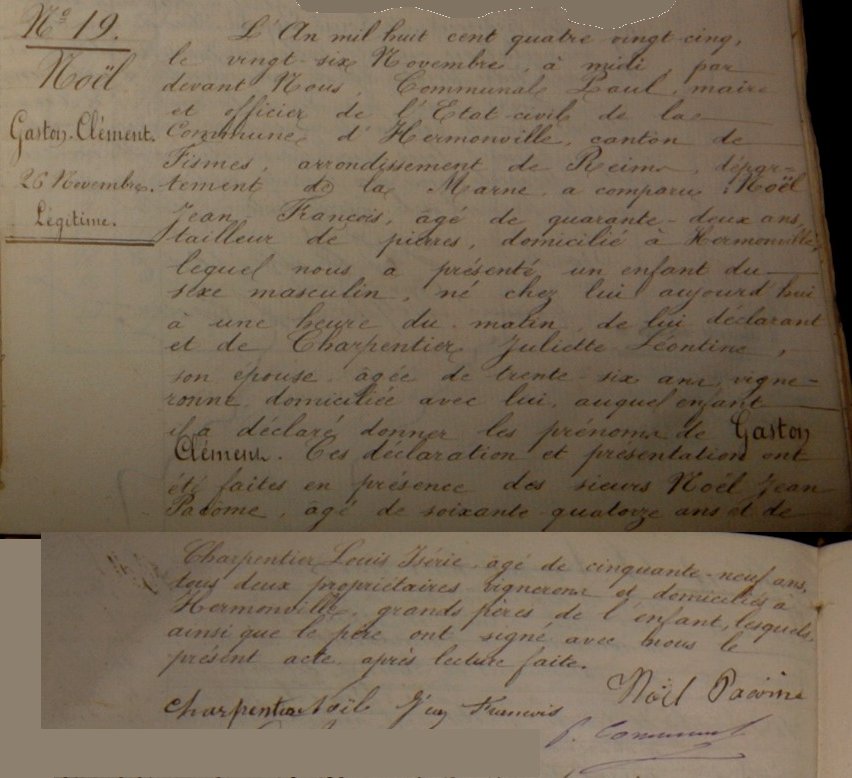 N° 19.
Noël
Gaston Clément.
26 Novembre.
Légitime.
L'An mil huit cent quatre vingt-cinq,
le vingt-six Novembre, à midi, par
devant Nous, Communal Paul, maire
et officier de l'Etat-civil de la
Commune d'Hermonville, canton de
Fismes, arrondissement de Reims, dépar-
tement de la Marne, a comparu : Noël
Jean François, âgé de quarante-deux ans,
tailleur de pierres, domicilié à Hermonville,
lequel nous a présenté un enfant du
sexe masculin, né chez lui aujourd'hui
à une heure du matin, de lui déclarant
et de Charpentier Juliette Léontine,
son epouse âgée de trente-six ans, vigne-
ronne domiciliée avec lui, auquel enfant
il a déclaré donner les prénoms de Gaston
Clément. Ces déclaration et présentation ont
été faites en présence des sieurs Noël Jean
Pacome, âgé de soixante-quatorze ans et de
Charpentier Louis Isérie, âgé de cinquante-neuf ans,
tous deux propriétaires vignerons et domiciliés à
Hermonville, grands pères de l'enfant, lesquels,
ainsi que le père ont signé avec nous le
présent acte après lecture faite.
Noël Pacôme
Charpentier Noël Jean Francois
P. Communal